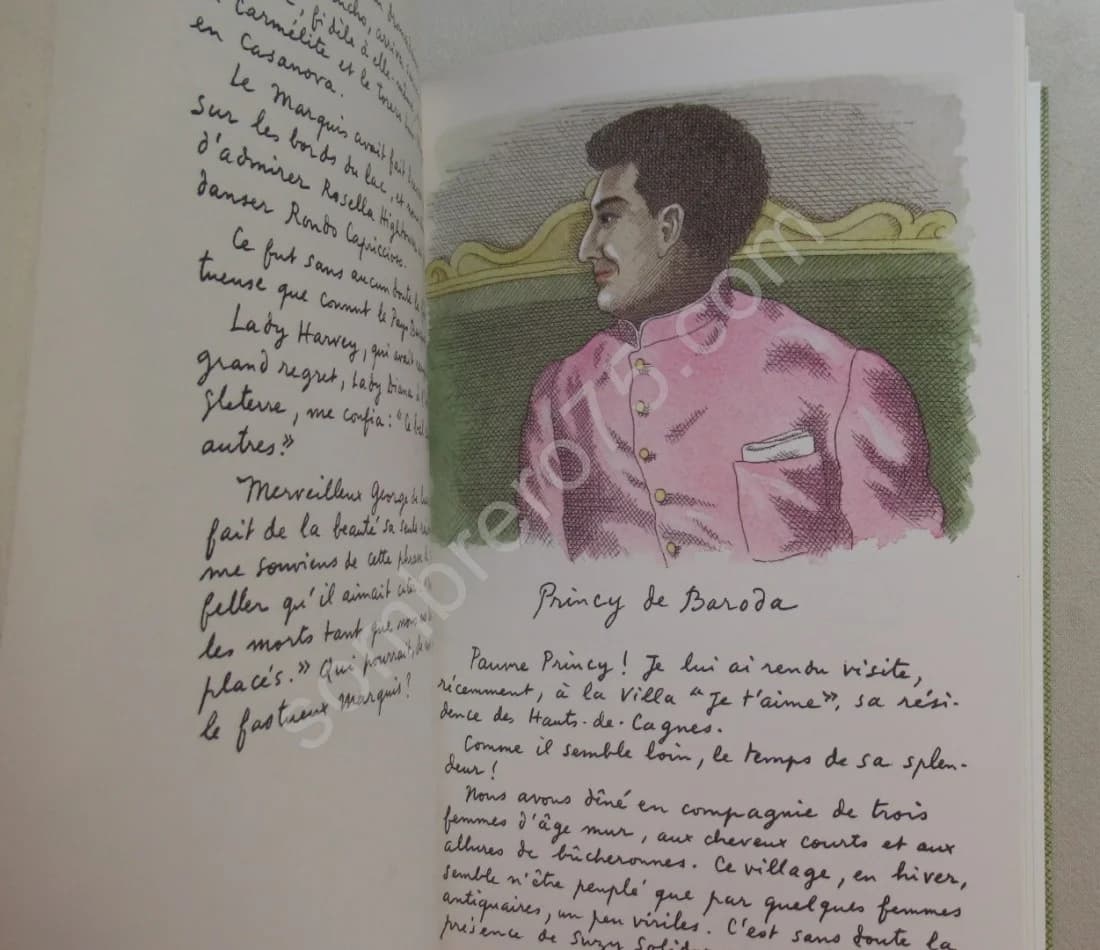 fidèle à elle-même
Carmélite et le
en Casanova.
Le Marquis avait fait
sur les bords du lac, et
d'admirer Rosella
danser Rondo Capriccioso.
Ce fut sans aucun doute la
tueuse que connut le Pays
Lady Harvey, qui avait
grand regret, Lady Diana
gleterre, me confia : "Ce bal
autres."
"Merveilleux George de
fait de la beauté sa seule
me souviens de cette phrase
feller qu'il aimait
les morts tant que nous
placés." Qui pourrait,
le fastueux Marquis ?
Princy de Baroda
Pauvre Princy ! Je lui ai rendu visite,
récemment, à la Villa "Je t'aime", sa rési-
dence des Hauts-de-Cagnes.
Comme il semble loin, le temps de sa splen-
deur !
Nous avons dîné en compagnie de trois
femmes d'âge mur, aux cheveux courts et aux
allures de bûcheronnes. Ce village, en hiver,
semble n'être peuplé que par quelques femmes
antiquaires, un peu viriles. C'est sans doute la
présence de Suzy
sombrero75.com